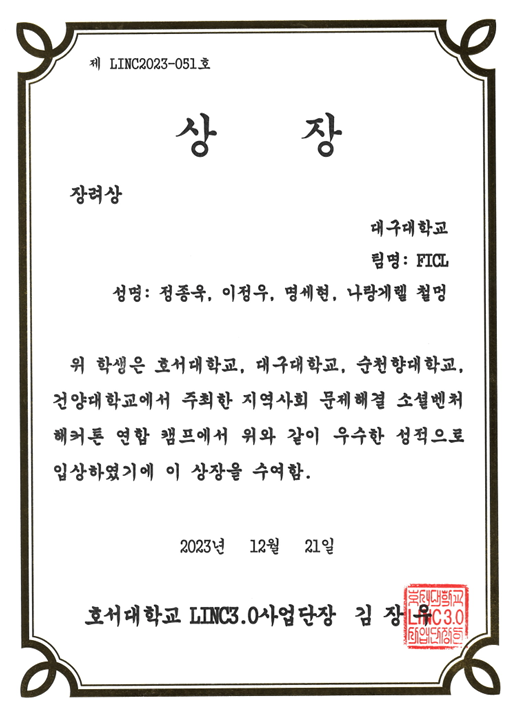 제 LINC2023-051호
상 장
장려상
대구대학교
팀명: FICL
성명: 정종욱, 이정우, 명세현, 나랑게렐 철멍
위 학생은 호서대학교, 대구대학교, 순천향대학교,
건양대학교에서 주최한 지역사회 문제해결 소셜벤처
해커톤 연합 캠프에서 위와 같이 우수한 성적으로
입상하였기에 이 상장을 수여함.
2023년 12월 21일
호서대학교 LINC3.0사업단장 김 장 우
호서대학교
LINC3.0
사업단장인